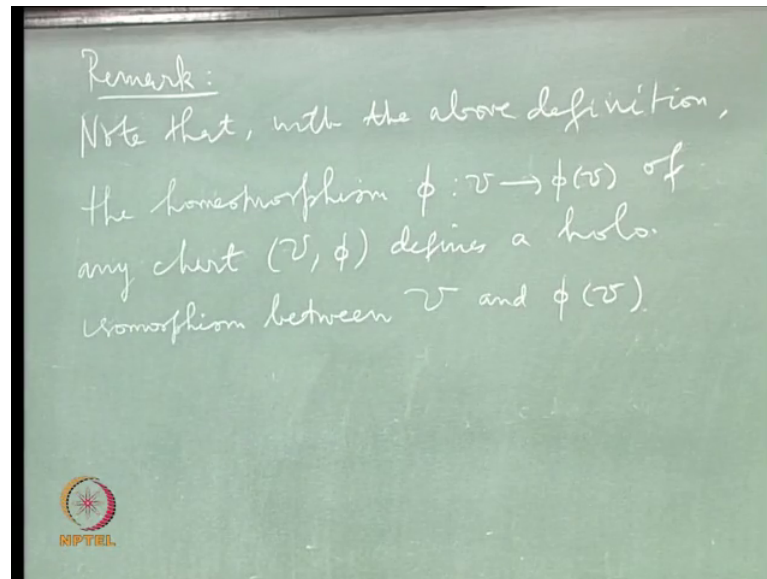 Remark:
Note that, with the above definition,
the homeomorphism ϕ : U → ϕ(U) of
any chart (U, ϕ) defines a holo.
isomorphism between U and ϕ(U).
NPTEL